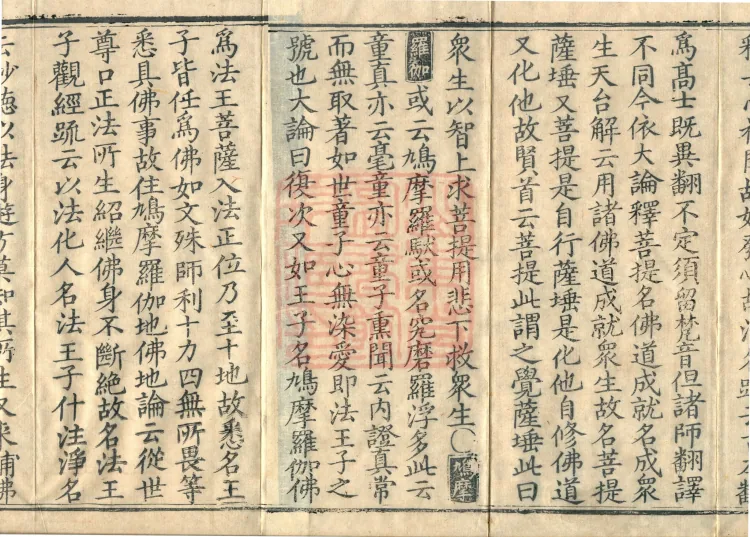 爲高士既異翻不定須留梵音但諸師翻譯
不同今依大論釋菩提名佛道成就名成眾
生天台解云用諸佛道成就眾生故名菩提
薩埵又菩提是自行薩埵是化他自修佛道
又化他故賢首云菩提此謂之覺薩埵此曰
眾生以智上求菩提用悲下救眾生〇鳩摩
羅伽或云鳩摩羅馱或名究磨羅浮多此云
童真亦云毫童亦云童子熏聞云內證真常
而無取著如世童子心無染愛即法王子之
號也大論曰復次又如王子名鳩摩羅伽佛
爲法王菩薩入法正位乃至十地故悉名王
子皆任爲佛如文殊師利十力四無所畏等
悉具佛事故住鳩摩羅伽地佛地論云從世
尊口正法所生紹繼佛身不斷絶故名法王
子觀經疏云以法化人名法王子什注淨名
云妙德以法身遊方莫知其所生又來補佛